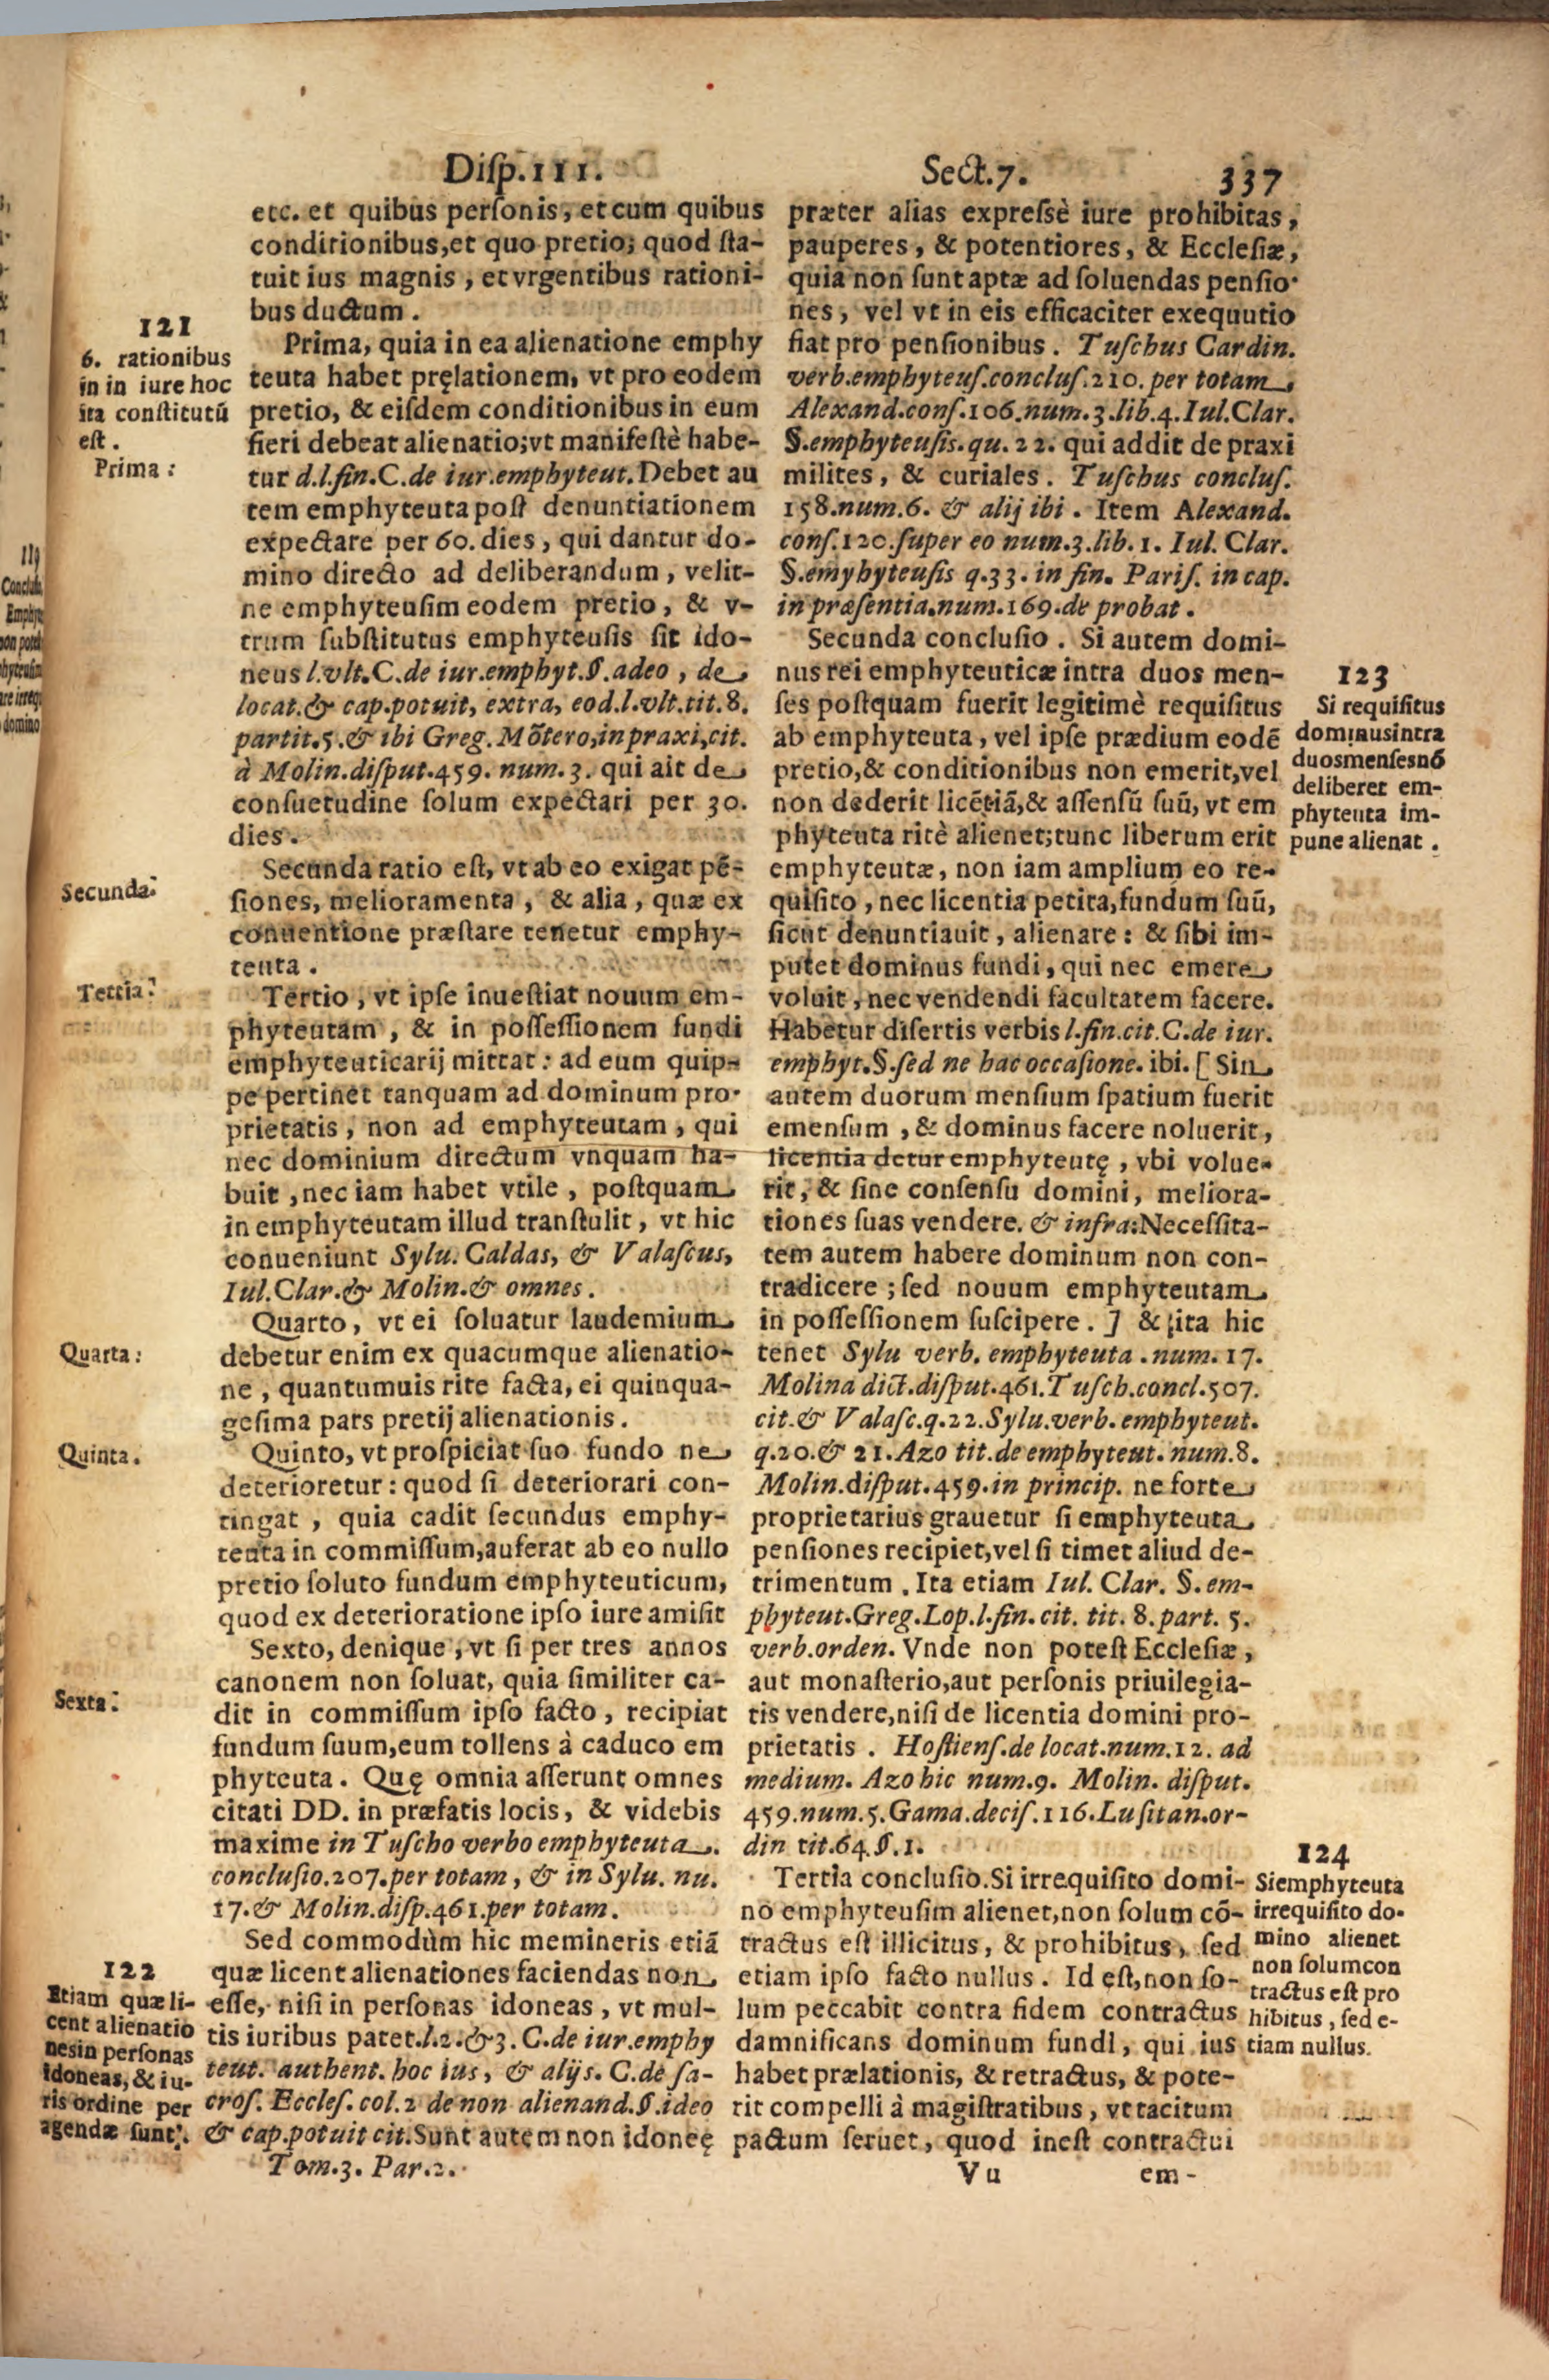 Disp.III. Sect.7. 337
etc. et quibus perſonis, et cum quibus
conditionibus, et quo pretio; quod ſta-
tuit ius magnis, et vrgentibus rationi-
bus ductum.
121
6. rationibus
in in iure hoc
ita conſtitutū
eſt.
Prima:
Prima, quia in ea alienatione emphy
teuta habet pręlationem, vt pro eodem
pretio, & eiſdem conditionibus in eum
fieri debeat alienatio; vt manifeſtè habe-
tur d.l.fin.C.de iur.emphyteut. Debet au
tem emphyteuta poſt denuntiationem
expectare per 60. dies, qui dantur do-
mino directo ad deliberandum, velit-
ne emphyteuſim eodem pretio, & v-
trum ſubſtitutus emphyteuſis ſit ido-
neus l.vlt.C.de iur.emphyt.§.adeo, de
locat.& cap.potuit, extra, eod.l.vlt.tit.8.
partit.5.& ibi Greg. Mõtero, in praxi, cit.
à Molin.diſput.459. num.3. qui ait de
conſuetudine ſolum expectari per 30.
dies.
Secunda:
Secunda ratio eſt, vt ab eo exigat pē-
ſiones, melioramenta, & alia, quæ ex
conuentione præſtare tenetur emphy-
teuta.
Tertia:
Tertio, vt ipſe inueſtiat nouum em-
phyteutam, & in poſſeſſionem fundi
emphyteuticarij mittat: ad eum quip-
pe pertinet tanquam ad dominum pro-
prietatis, non ad emphyteutam, qui
nec dominium directum vnquam ha-
buit, nec iam habet vtile, poſtquam
in emphyteutam illud tranſtulit, vt hic
conueniunt Sylu. Caldas, & Valaſcus,
Iul.Clar.& Molin.& omnes.
Quarta:
Quarto, vt ei ſoluatur laudemium
debetur enim ex quacumque alienatio-
ne, quantumuis rite facta, ei quinqua-
geſima pars pretij alienationis.
Quinta.
Quinto, vt proſpiciat ſuo fundo ne
deterioretur: quod ſi deteriorari con-
tingat, quia cadit ſecundus emphy-
teuta in commiſſum, auferat ab eo nullo
pretio ſoluto fundum emphyteuticum,
quod ex deterioratione ipſo iure amiſit
Sexta:
Sexto, denique, vt ſi per tres annos
canonem non ſoluat, quia ſimiliter ca-
dit in commiſſum ipſo facto, recipiat
fundum ſuum, eum tollens à caduco em
phyteuta. Quę omnia aſſerunt omnes
citati DD. in præfatis locis, & videbis
maxime in Tuſcho verbo emphyteuta.
concluſio.207.per totam, & in Sylu. nu.
17.& Molin.diſp.461.per totam.
122
Etiam quæ li-
cent alienatio
nes in perſonas
idoneas, & iu-
ris ordine per
agendæ ſunt.
Sed commodùm hic memineris etiã
quæ licent alienationes faciendas non
eſſe, niſi in perſonas idoneas, vt mul-
tis iuribus patet.l.2.&3. C.de iur.emphy
teut. authent. hoc ius, & alijs. C.de ſa-
croſ. Eccleſ. col.2 de non alienand.§.ideo
& cap.potuit cit. Sunt autem non idoneę
Tom.3. Par.2.
præter alias expreſsè iure prohibitas,
pauperes, & potentiores, & Eccleſiæ,
quia non ſunt aptæ ad ſoluendas penſio-
nes, vel vt in eis efficaciter exequutio
fiat pro penſionibus. Tuſchus Cardin.
verb.emphyteuſ.concluſ.210.per totam,
Alexand.conſ.106.num.3.lib.4.Iul.Clar.
§.emphyteuſis.qu.22. qui addit de praxi
milites, & curiales. Tuſchus concluſ.
158.num.6. & alij ibi. Item Alexand.
conſ.120.ſuper eo num.3.lib.1. Iul. Clar.
§.emyhyteuſis q.33. in fin. Pariſ. in cap.
in præſentia.num.169.de probat.
Secunda concluſio. Si autem domi-
nus rei emphyteuticæ intra duos men-
ſes poſtquam fuerit legitimè requiſitus
ab emphyteuta, vel ipſe prædium eodē
pretio, & conditionibus non emerit, vel
non dederit licētiã, & aſſenſū ſuū, vt em
phyteuta ritè alienet; tunc liberum erit
emphyteutæ, non iam amplium eo re-
quiſito, nec licentia petita, fundum ſuū,
ſicut denuntiauit, alienare: & ſibi im-
putet dominus fundi, qui nec emere
voluit, nec vendendi facultatem facere.
Habetur diſertis verbis l.fin.cit.C.de iur.
emphyt.§.ſed ne hac occaſione. ibi. [ Sin
autem duorum menſium ſpatium fuerit
emenſum, & dominus facere noluerit,
licentia detur emphyteutę, vbi volue-
rit, & ſine conſenſu domini, meliora-
tiones ſuas vendere. & infra: Neceſſita-
tem autem habere dominum non con-
tradicere; ſed nouum emphyteutam
in poſſeſſionem ſuſcipere. ] & ita hic
tenet Sylu verb. emphyteuta. num. 17.
Molina dict.diſput.461.Tuſch.concl.507.
cit.& Valaſc.q.22.Sylu.verb. emphyteut.
q.20.& 21.Azo tit.de emphyteut. num.8.
Molin.diſput.459.in princip. ne forte
proprietarius grauetur ſi emphyteuta
penſiones recipiet, vel ſi timet aliud de-
trimentum. Ita etiam Iul. Clar. §. em-
phyteut.Greg.Lop.l.fin.cit. tit. 8.part. 5.
verb.orden. Vnde non poteſt Eccleſiæ,
aut monaſterio, aut perſonis priuilegia-
tis vendere, niſi de licentia domini pro-
prietatis. Hoſtienſ.de locat.num.12. ad
medium. Azo hic num.9. Molin. diſput.
459.num.5.Gama.deciſ.116.Luſitan.or-
din tit.64.§.1.
123
Si requiſitus
dominus intra
duos menſes nō
deliberet em-
phyteuta im-
pune alienat.
Tertia concluſio. Si irrequiſito domi-
no emphyteuſim alienet, non ſolum cō-
tractus eſt illicitus, & prohibitus, ſed
etiam ipſo facto nullus. Id eſt, non ſo-
lum peccabit contra fidem contractus
damnificans dominum fundi, qui ius
habet prælationis, & retractus, & pote-
rit compelli à magiſtratibus, vt tacitum
pactum ſeruet, quod ineſt contractui
124
Si emphyteuta
irrequiſito do-
mino alienet
non ſolum con
tractus eſt pro
hibitus, ſed e-
tiam nullus.
Vu em-